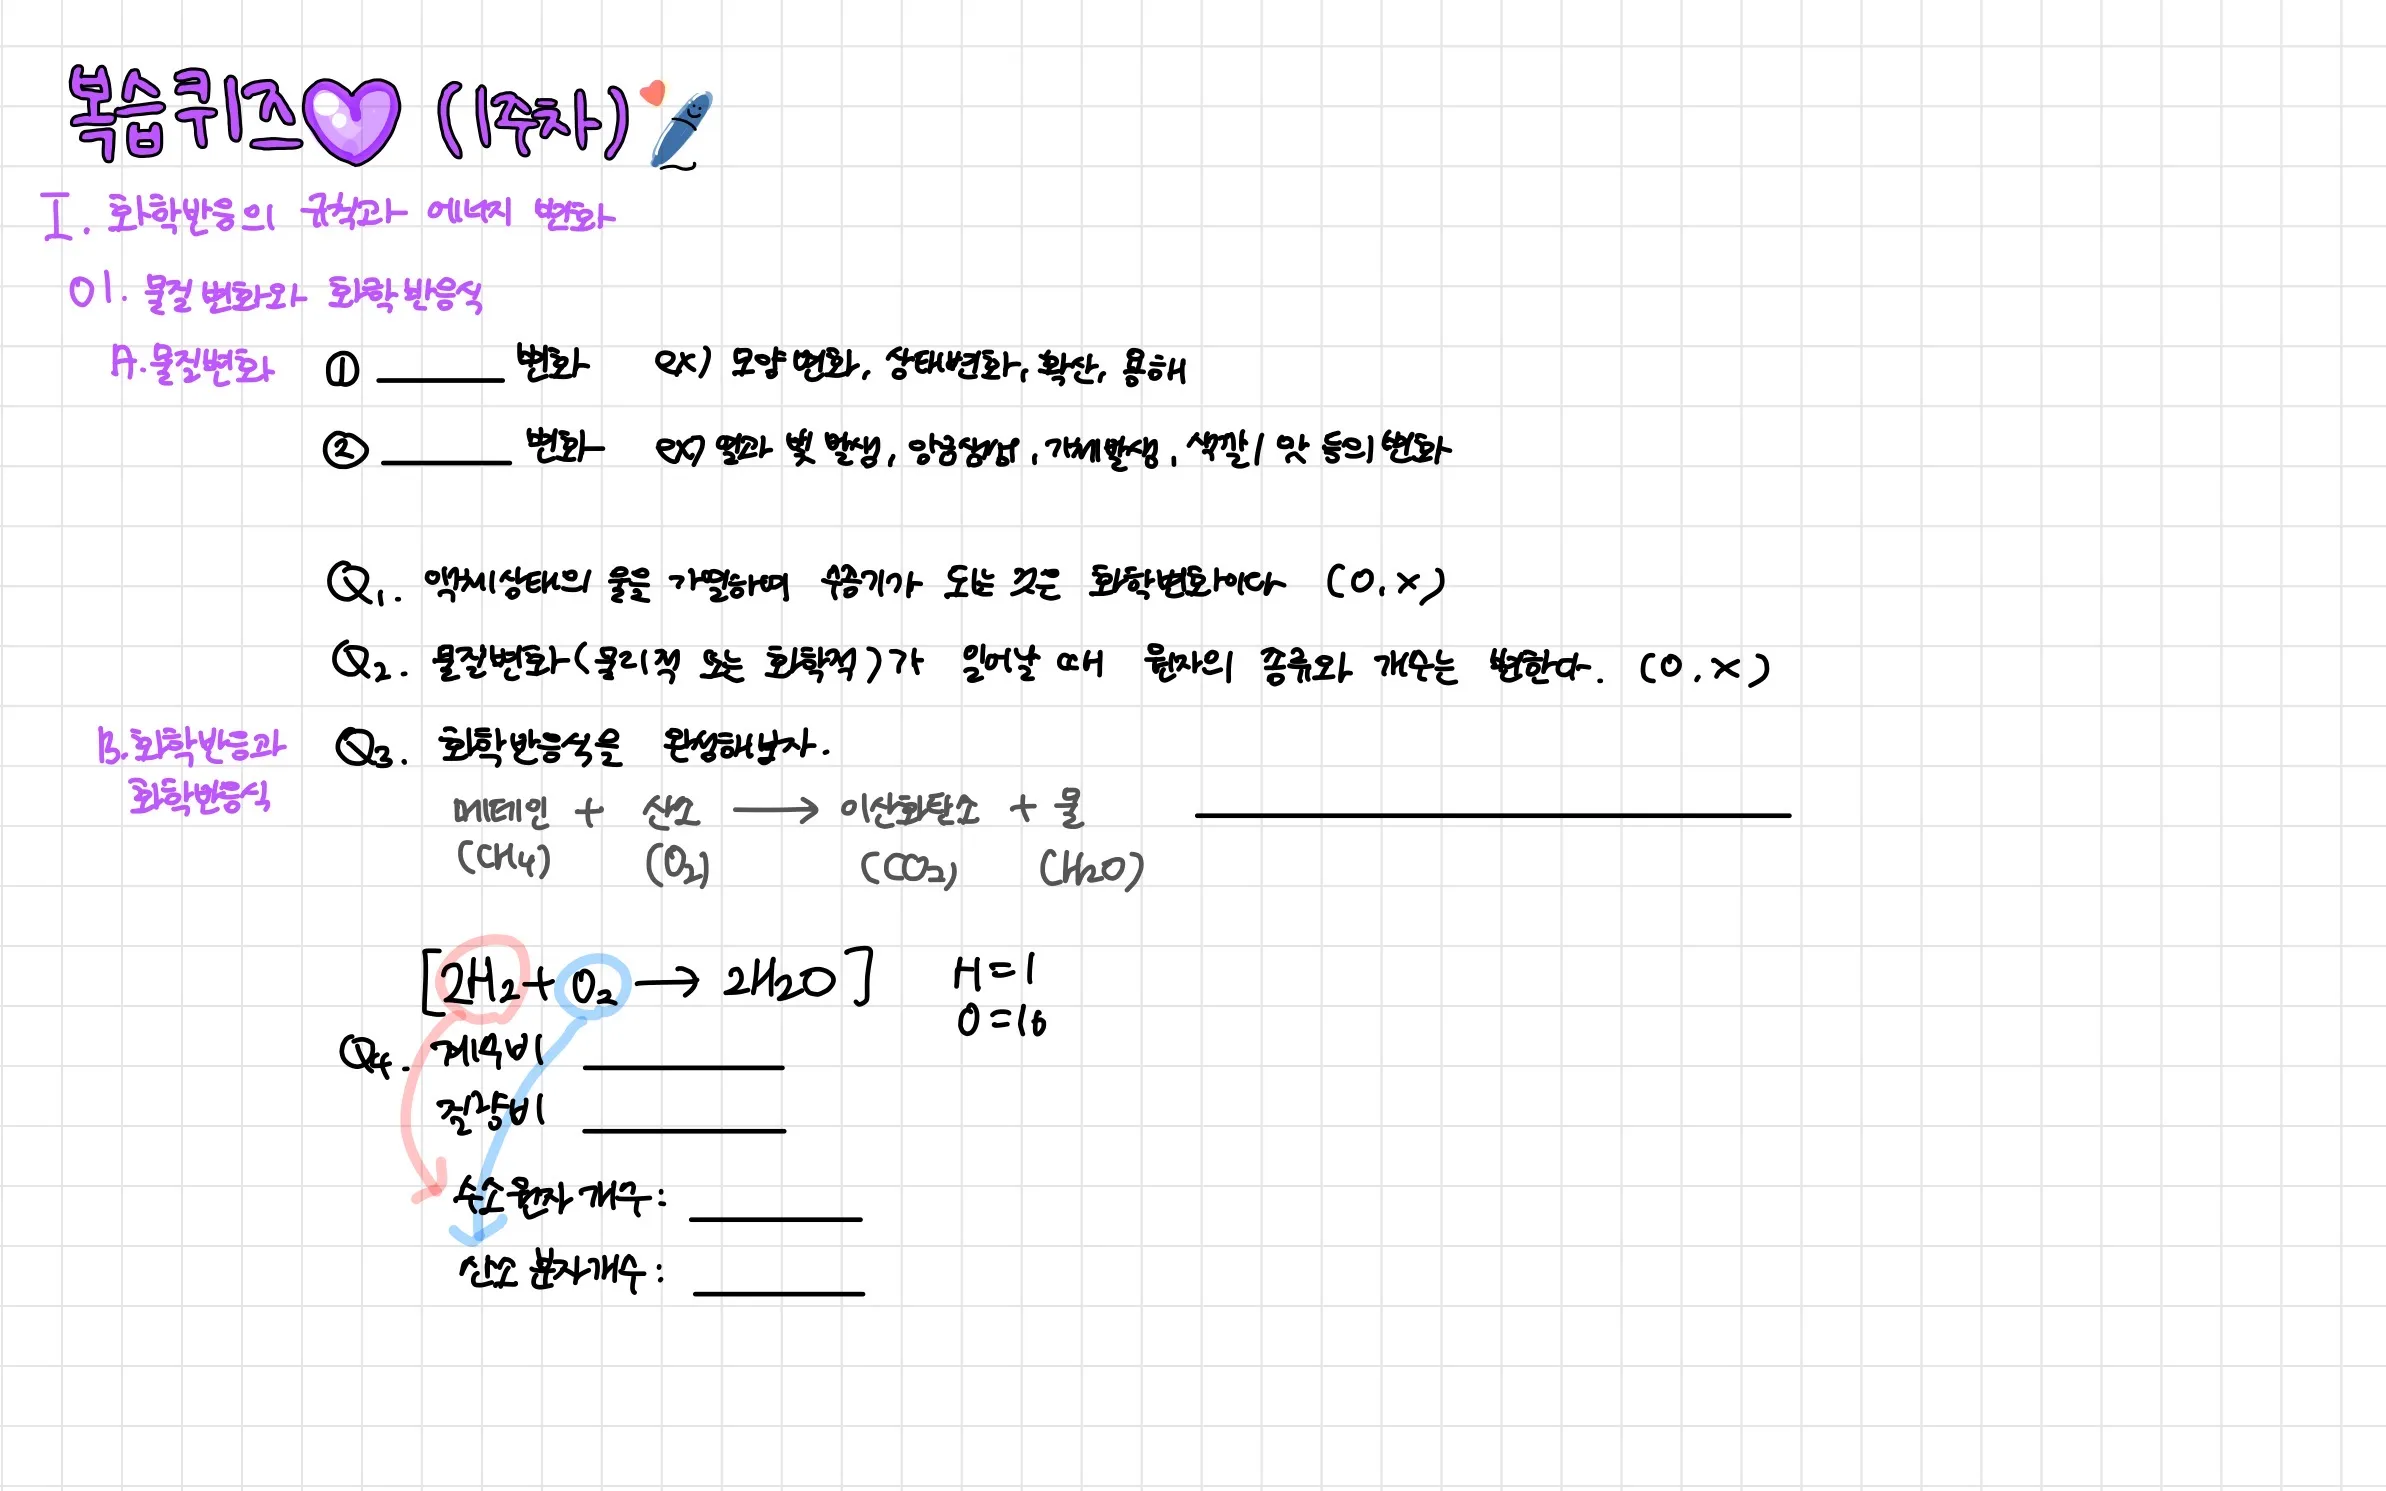 복습퀴즈 (1주차)
I. 화학반응의 규칙과 에너지 변화
01. 물질변화와 화학반응식
A. 물질변화 ① 변화 ex) 모양변화, 상태변화, 확산, 용해
② 변화 ex) 열과 빛 발생, 앙금생성, 기체발생, 색깔 / 맛 등의 변화
Q1. 액체상태의 물을 가열하며 수증기가 되는 것은 화학변화이다 (O, X)
Q2. 물질변화(물리적 또는 화학적)가 일어날 때 원자의 종류와 개수는 변한다. (O, X)
B. 화학반응과 화학반응식
Q3. 화학반응식을 완성해보자.
메테인 + 산소 → 이산화탄소 + 물
(CH4) (O2) (CO2) (H2O)
[2H2 + O2 → 2H2O] H=1
O=16
Q4. 계수비
질량비
수소 원자 개수:
산소 분자개수: